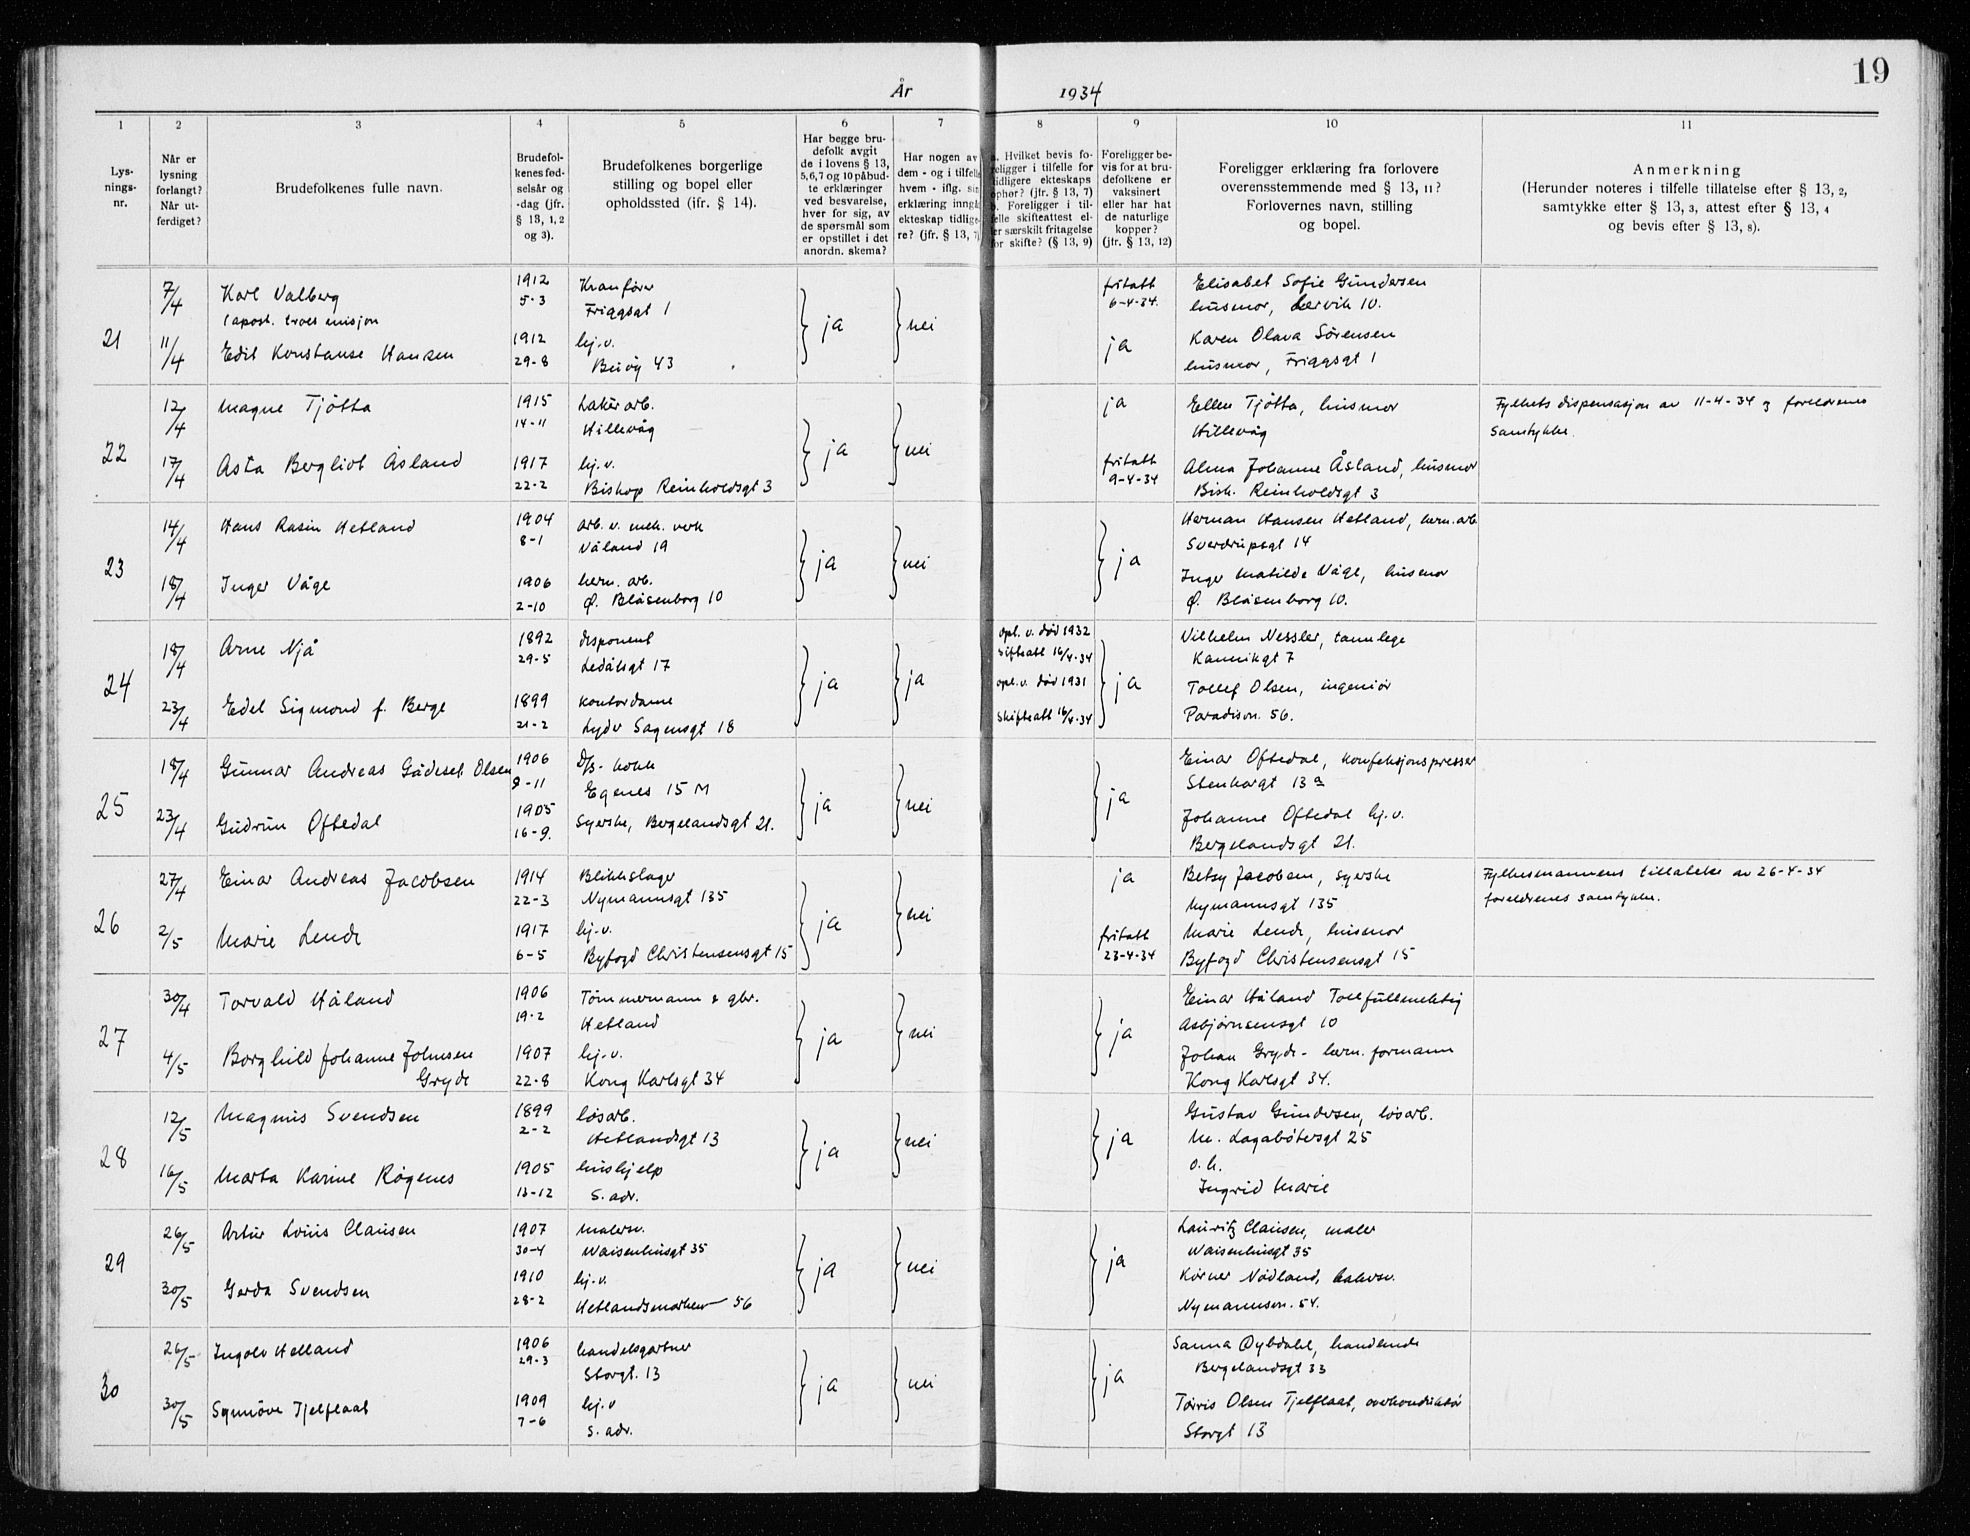 19
År 1934
1 2 3 4 5 6 7 8 9 10 11
Lys-
nings-
nr.
Når er
lysning
forlangt?
Når ut-
ferdiget?
Brudefolkenes fulle navn.
Brudefol-
kenes fød-
selsår og
-dag (jfr.
§ 13, 1, 2
og 3).
Brudefolkenes borgerlige
stilling og bopel eller
opholdssted (ifr. § 14).
Har begge bru-
defolk avgit
de i lovens § 13,
5, 6, 7 og 10 påbud-
te erklæringer
ved besvarelse,
hver for sig, av
de spørsmål som
er opstillet i det
anordn. skema?
Har nogen av
dem - og i tilfelle
hvem - iflg. sin
erklæring inngå
ekteskap tidlige-
re? (jfr. § 13, 7)
a. Hvilket bevis fo-
religger i tilfelle for
tidligere ekteskaps
ophør? (jfr. § 13, 7)
b. Foreligger i til-
felle skifteattest el-
er særskilt fritagelse
for skifte? (§ 13, 9)
Foreligger be-
vis for at bru-
defolkene er
vaksinert
eller har hat
de naturlige
kopper?
(jfr. § 13, 12)
Foreligger erklæring fra forlovere
overensstemmende med § 13, 11?
Forlovernes navn, stilling
og bopel.
Anmerkning
(Herunder noteres i tilfelle tillatelse efter § 13, 2,
samtykke efter § 13, 3, attest efter § 13, 4
og bevis efter § 13, 8).
21
7/4 Karl Valberg 1912 Kranfører fritatt Elisabet Sofie Gundersen
(apost. troes misjon 5-3 Friggsgt 1 6-4-34. husmor, Lervik 10.
ja nei
11/4 Edit Konstanse Hansen 1912 hj.v. ja Karen Olava Sørensen
29-8 Buøy 43 husmor, Friggsgt 1
22
12/4 Magne Tjøtta 1915 Lakér arb. ja Ellen Tjøtta, husmor Fylkets dispensasjon av 11-4-34 og foreldrenes
14-11 Hillevåg Hillevåg Samtykke.
ja nei
17/4 Asta Bergliot Åsland 1917 hj.v. fritatt Alma Johanne Åsland, husmor
22-2 Biskop Reinholdsgt 3 9-4-34 Bisk. Reinholdsgt 3
23
14/4 Hans Rasin Hetland 1904 arb. v. mek. verk Herman Hansen Hetland, herm. arb.
8-1 Våland 19 Sverdrupsgt 14
ja nei ja
18/4 Inger Våge 1906 herm. arb. Inger Matilde Våge, husmor
2-10 Ø. Blåsenborg 10 Ø. Blåsenborg 10.
24
18/4 Arne Njå 1892 disponent opl. v. død 1932 Vilhelm Nessler, tannlege
29-5 Ledålsgt 17 skifteatt 16/4-34 Kannikgt 7
ja ja ja
23/4 Edel Sigmond f. Berge 1899 kontordame opl. v. død 1931 Tollef Olsen, ingeniør
21-2 Lyder Sagensgt 18 Skifteatt 16/4-34 Paradisv. 56.
25
18/4 Gunnar Andreas Gådeset Olsen 1906 D/s- kokk Einar Oftedal, konfeksjonspresser
9-11 Egenes 15 M Stenhargt 13a
ja nei ja
23/4 Gudrun Oftedal 1905 Syerske, Bergelandsgt 21. Johanne Oftedal hj.v.
16-9. Bergelandsgt 21.
26
27/4 Einar Andreas Jacobsen 1914 Blikkslager ja Betsy Jacobsen, syerske Fylkesmannens tillatelse av 26-4-34
22-3 Nymannsgt 135 Nymannsgt 135 foreldrenes samtykke.
ja nei
2/5 Marie Lende 1917 hj.v. fritatt Marie Lende, husmor
6-5 Byfogd Christensensgt 15 23-4-34 Byfogd Christensensgt 15
27
30/4 Torvald Håland 1906 Tømmermann & gbr. Einar Håland Tollfullmektig
19-2 Hetland Asbjørnsensgt 10
ja nei ja
4/5 Borghild Johanne Johnsen 1907 hj.v. Johan Gryde - herm. formann
Gryde 22-8 Kong Karlsgt 34 Kong Karlsgt 34.
28
12/5 Magnus Svendsen 1899 løsarb. Gustav Gundersen, løsarb.
2-2 Hetlandsgt 13 M. Lagabøtersgt 25
ja nei ja
16/5 Marta Karine Røgenes 1905 hushjelp o.h.
13-12 S. adr. Ingrid Marie
29
26/5 Artur Louis Clausen 1907 malersv. Lauritz Clausen, maler
30-4 Waisenhusgt 35 Waisenhusgt 35
ja nei ja
30/5 Gerda Svendsen 1910 hj.v. Körner Nødland, bakersv.
28-2 Hetlandsmarken 56 Nymannsv. 54.
30
26/5 Ingolv Helland 1906 handelsgartner Sanna Øybdahl, handlende
29-3 Storgt. 13 Bergelandsgt 33
ja nei ja
30/5 Synnøve Tjelflaat 1909 hj.v Torris Olsen Tjelflaat, overkonduktør
7-6 S. adr. Storgt 13